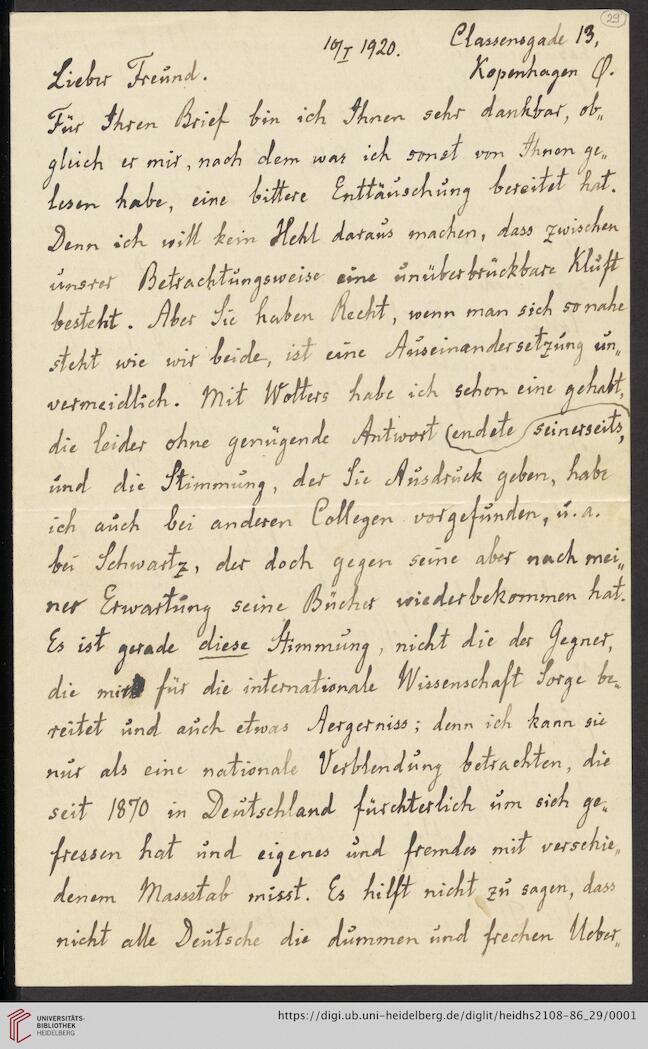 29
10/I 1920. Classensgade 13,
Lieber Freund. Kopenhagen Ø.
Für Ihren Brief bin ich Ihnen sehr dankbar, ob„
gleich er mir, nach dem was ich sonst von Ihnen ge„
lesen habe, eine bittere Enttäuschung bereitet hat.
Denn ich will kein Hehl daraus machen, dass zwischen
unsrer Betrachtungsweise eine unüberbrückbare Kluft
besteht. Aber Sie haben Recht, wenn man sich so nahe
steht wie wir beide, ist eine Auseinandersetzung un„
vermeidlich. Mit Wolters habe ich schon eine gehabt,
die leider ohne genügende Antwort (endete seinerseits,
und die Stimmung, der Sie Ausdruck geben, habe
ich auch bei anderen Collegen vorgefunden, u. a.
bei Schwartz, der doch gegen seine aber nach mei„
ner Erwartung seine Bücher wiederbekommen hat.
Es ist gerade diese Stimmung, nicht die der Gegner,
die mir für die internationale Wissenschaft Sorge be„
reitet und auch etwas Aergerniss; denn ich kann sie
nur als eine nationale Verblendung betrachten, die
seit 1870 in Deutschland fürchterlich um sich ge„
fressen hat und eigenes und fremdes mit verschie„
denem Massstab misst. Es hilft nicht zu sagen, dass
nicht alle Deutsche die dummen und frechen Ueber„
UNIVERSITÄTS-
BIBLIOTHEK
HEIDELBERG
https://digi.ub.uni-heidelberg.de/diglit/heidhs2108-86_29/0001